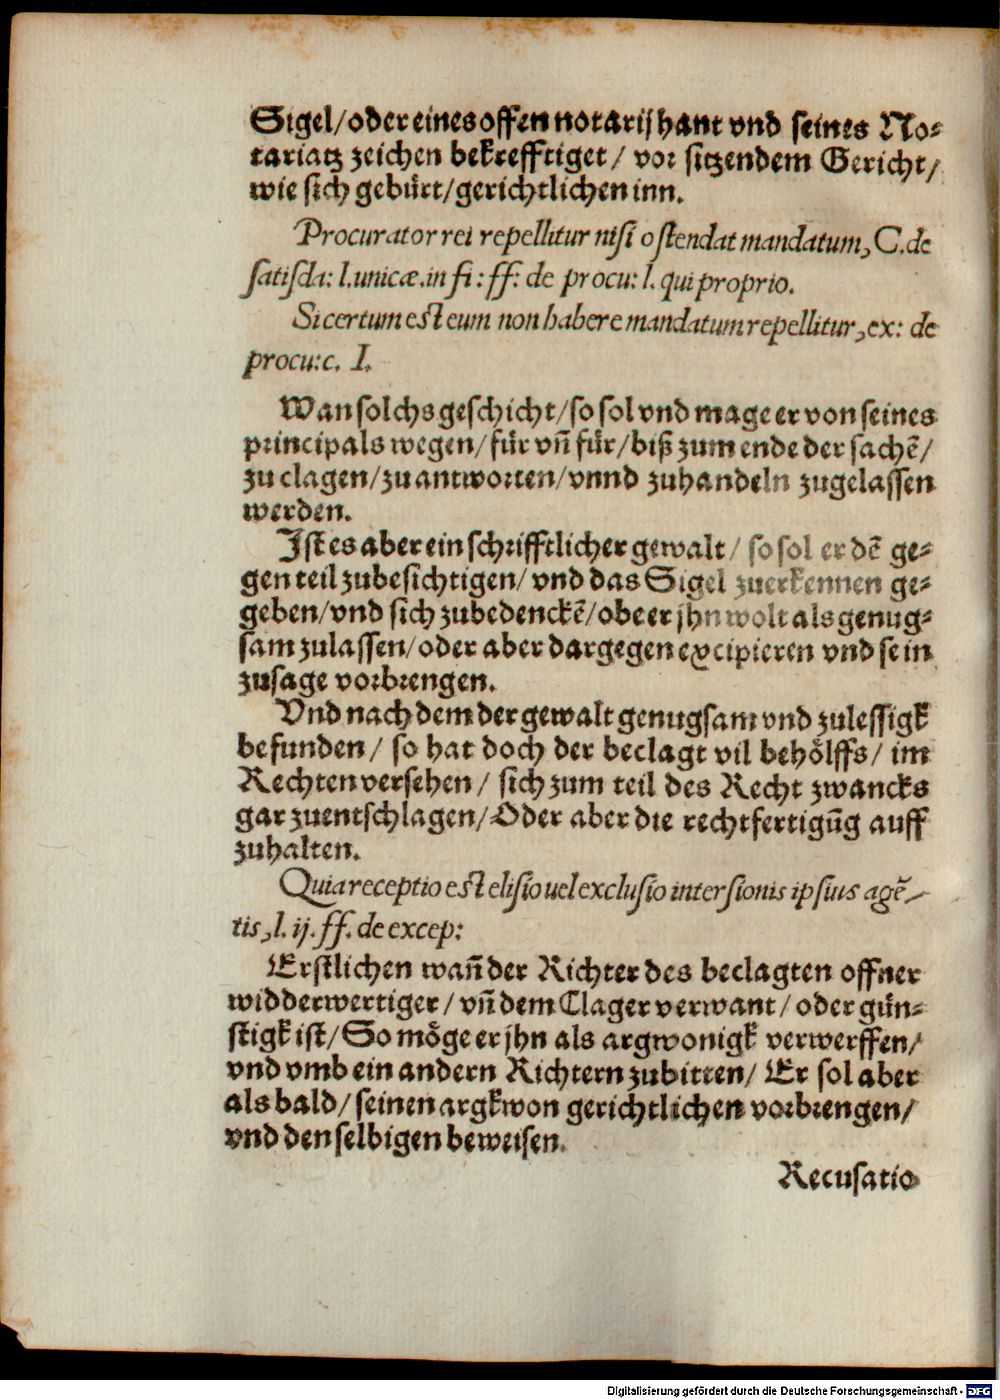 Sigel/ oder eines offen notarij hant vnd seines No⸗
tariatz zeichen bekrefftiget/ vor sitzendem Gericht/
wie sich gebürt/ gerichtlichen inn.
Procurator rei repellitur nisi ostendat mandatum, C. de
satisda: l. unicæ. in fi: ff: de procu: l. qui proprio.
Si certum est eum non habere mandatum repellitur, ex: de
procu: c. I.
Wan solchs geschicht/ so sol vnd mage er von seines
principals wegen/ für vñ für/ biß zum ende der sachẽ/
zu clagen/ zu antworten/ vnnd zuhandeln zugelassen
werden.
Ist es aber ein schrifftlicher gewalt/ so sol er dẽ ge⸗
gen teil zubesichtigen/ vnd das Sigel zuerkennen ge⸗
geben/ vnd sich zubedenckẽ/ obe er jhn wolt als genug⸗
sam zulassen/ oder aber dargegen excipieren vnd sein
zusage vorbrengen.
Vnd nach dem der gewalt genugsam vnd zulessigk
befunden/ so hat doch der beclagt vil behölffs/ im
Rechten versehen/ sich zum teil des Recht zwancks
gar zuentschlagen/ Oder aber die rechtfertigũg auff
zuhalten.
Quia receptio est elisio uel exclusio intersionis ipsius agẽ⸗
tis, l. ij. ff. de excep:
Erstlichen wañ der Richter des beclagten offner
widderwertiger/ vñ dem Clager verwant/ oder gün⸗
stigk ist/ So möge er jhn als argwonigk verwerffen/
vnd vmb ein andern Richtern zubitten/ Er sol aber
als bald/ seinen argkwon gerichtlichen vorbrengen/
vnd den selbigen beweisen.
Recusatio
Digitalisierung gefördert durch die Deutsche Forschungsgemeinschaft - DFG